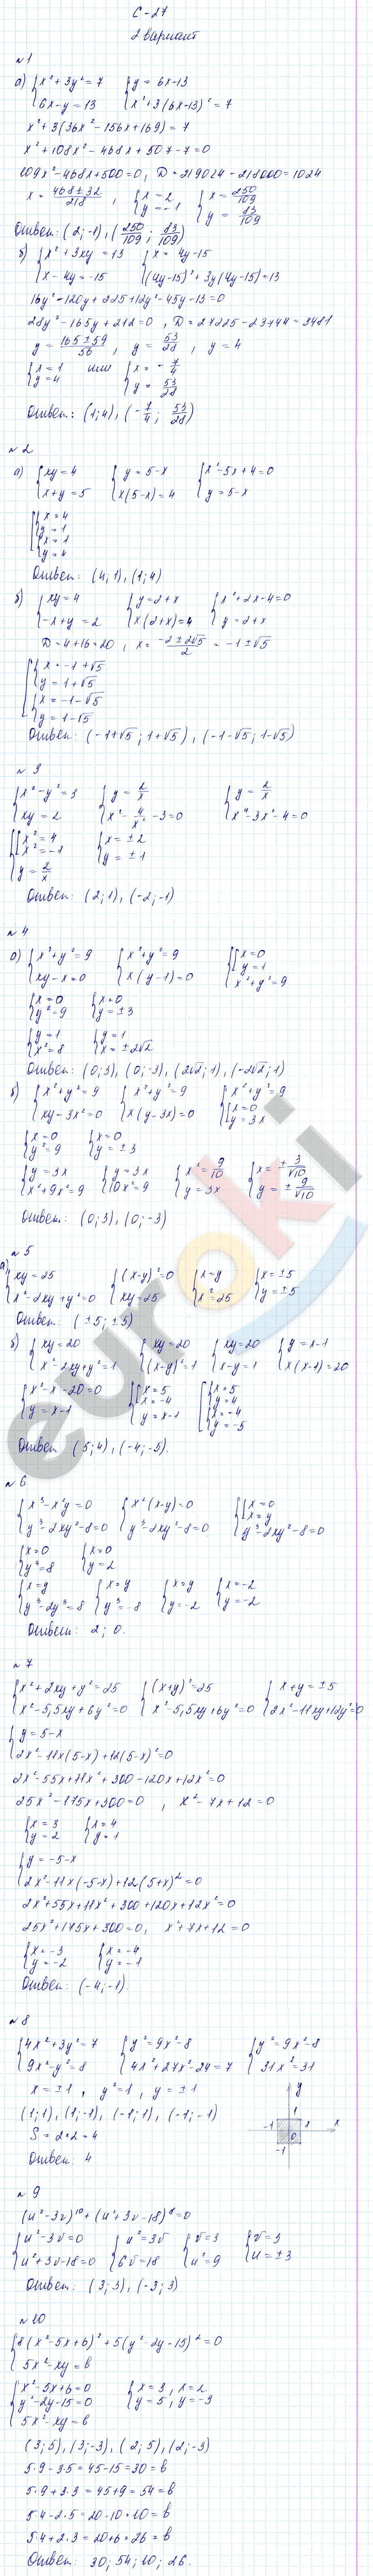 С-27
2 вариант
№1
а) { x² + 3y² = 7 { y = 6x-13
6x - y = 13 x² + 3(6x-13)² = 7
x² + 3(36x² - 156x + 169) = 7
x² + 108x² - 468x + 507 - 7 = 0
109x² - 468x + 500 = 0, D = 219024 - 218000 = 1024
x = (468 ± 32)/218, { x = 2 y = -1 { x = 250/109 y = 83/109
Ответ: (2; -1), (250/109; 83/109)
б) { x² + 3xy = 13 { x = 4y - 15
x - 4y = -15 (4y-15)² + 3y(4y-15) = 13
16y² - 120y + 225 + 12y² - 45y - 13 = 0
28y² - 165y + 212 = 0, D = 27225 - 23744 = 3481
y = (165 ± 59)/56, y = 53/28, y = 4
{ x = 1 y = 4 или { x = -7/4 y = 53/28
Ответ: (1; 4), (-7/4; 53/28)
№2
а) { xy = 4 { y = 5-x { x² - 5x + 4 = 0
x + y = 5 x(5-x) = 4 y = 5-x
[ { x = 4
y = 1
{ x = 1
y = 4
Ответ: (4; 1), (1; 4)
б) { xy = 4 { y = 2+x { x² + 2x - 4 = 0
-x + y = 2 x(2+x) = 4 y = 2+x
D = 4 + 16 = 20, x = (-2 ± 2√5)/2 = -1 ± √5
[ { x = -1 + √5
y = 1 + √5
{ x = -1 - √5
y = 1 - √5
Ответ: (-1+√5; 1+√5), (-1-√5; 1-√5)
№3
{ x² - y² = 3 { y = 2/x { y = 2/x
xy = 2 x² - 4/x² - 3 = 0 x⁴ - 3x² - 4 = 0
{ [ x² = 4 { x = ±2
x² = -1 y = ±1
y = 2/x
Ответ: (2; 1), (-2; -1)
№4
а) { x² + y² = 9 { x² + y² = 9 { [ x = 0
xy - x = 0 x(y-1) = 0 y = 1
x² + y² = 9
{ x = 0 { x = 0
y² = 9 y = ±3
{ y = 1 { y = 1
x² = 8 x = ±2√2
Ответ: (0; 3), (0; -3), (2√2; 1), (-2√2; 1)
б) { x² + y² = 9 { x² + y² = 9 { x² + y² = 9
xy - 3x² = 0 x(y-3x) = 0 [ x = 0
y = 3x
{ x = 0 { x = 0
y² = 9 y = ±3
{ y = 3x { y = 3x { x² = 9/10 { x = ±3/√10
x² + 9x² = 9 10x² = 9 y = 3x y = ±9/√10
Ответ: (0; 3), (0; -3)
№5
а) { xy = 25 { (x-y)² = 0 { x = y { x = ±5
x² - 2xy + y² = 0 xy = 25 x² = 25 y = ±5
Ответ: (±5; ±5)
б) { xy = 20 { xy = 20 { xy = 20 { y = x-1
x² - 2xy + y² = 1 (x-y)² = 1 x - y = 1 x(x-1) = 20
{ x² - x - 20 = 0 { [ x = 5 [ { x = 5
y = x-1 x = -4 y = 4
y = x-1 { x = -4
y = -5
Ответ (5; 4), (-4; -5).
№6
{ x³ - x²y = 0 { x²(x-y) = 0 { [ x = 0
y³ - 2xy² - 8 = 0 y³ - 2xy² - 8 = 0 x = y
y³ - 2xy² - 8 = 0
{ x = 0 { x = 0
y³ = 8 y = 2
{ x = y { x = y { x = y { x = -2
y³ - 2y³ = 8 y³ = -8 y = -2 y = -2
Ответ: 2; 0.
№7
{ x² + 2xy + y² = 25 { (x+y)² = 25 { x + y = ±5
x² - 5,5xy + 6y² = 0 x² - 5,5xy + 6y² = 0 2x² - 11xy + 12y² = 0
{ y = 5-x
2x² - 11x(5-x) + 12(5-x)² = 0
2x² - 55x + 11x² + 300 - 120x + 12x² = 0
25x² - 175x + 300 = 0, x² - 7x + 12 = 0
{ x = 3 { x = 4
y = 2 y = 1
{ y = -5-x
2x² - 11x(-5-x) + 12(5+x)² = 0
2x² + 55x + 11x² + 300 + 120x + 12x² = 0
25x² + 175x + 300 = 0, x² + 7x + 12 = 0
{ x = -3 { x = -4
y = -2 y = -1
Ответ: (-4; -1).
№8
{ 4x² + 3y² = 7 { y² = 9x² - 8 { y² = 9x² - 8
9x² - y² = 8 4x² + 27x² - 24 = 7 31x² = 31
x = ±1, y² = 1, y = ±1
(1; 1), (1; -1), (-1; 1), (-1; -1)
S = 2·2 = 4
Ответ: 4
y
1
-1 1 x
0
-1
№9
(u² - 3v)¹⁰ + (u² + 3v - 18)⁸ = 0
{ u² - 3v = 0 { u² = 3v { v = 3 { v = 3
u² + 3v - 18 = 0 6v = 18 u² = 9 u = ±3
Ответ: (3; 3), (-3; 3)
№10
{ 8(x² - 5x + 6)² + 5(y² - 2y - 15)² = 0
5x² - xy = b
{ x² - 5x + 6 = 0 { x = 3, x = 2
y² - 2y - 15 = 0 y = 5, y = -3
5x² - xy = b
(3; 5), (3; -3), (2; 5), (2; -3)
5·9 - 3·5 = 45 - 15 = 30 = b
5·9 + 3·3 = 45 + 9 = 54 = b
5·4 - 2·5 = 20 - 10 = 10 = b
5·4 + 2·3 = 20 + 6 = 26 = b
Ответ: 30; 54; 10; 26.
euroki